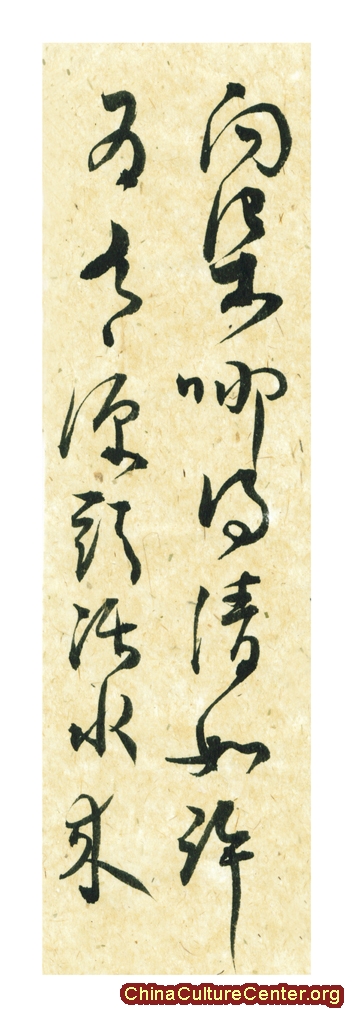 问渠哪得清如许
为有源头活水来
ChinaCultureCenter.org